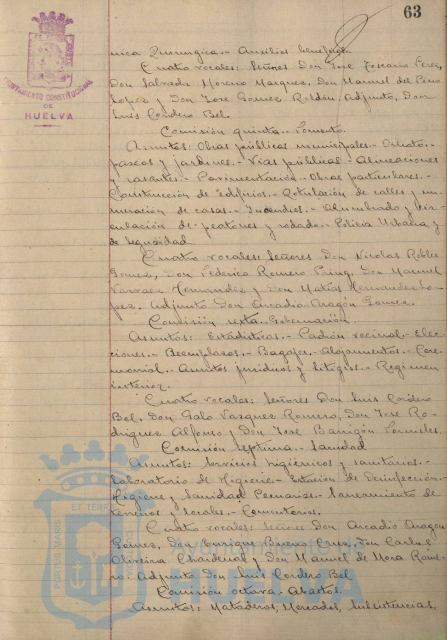 63
AYUNTAMIENTO CONSTITUCIONAL
DE
HUELVA
nica Quirurgica.- Auxilios beneficos
Cuatro vocales: Señores Don Jose Toscano Perez,
Don Salvador Moreno Marquez, Don Manuel del Pino
Lopez y Don Jose Gomez Roldan, Adjunto, Don
Luis Cordero Bel.
Comisión quinta.- Fomento.
Asuntos: Obras públicas municipales.- Ornato.-
paseos y jardines.- Vias públicas.- Alineaciones
y rasantes.- Pavimentación.- Obras particulares.-
Construcción de Edificios.- Rotulación de calles y nu-
meración de casas.- Incendios.- Alumbrado y cir-
culación de peatones y rodado.- Policia Urbana y
de Seguridad
Cuatro vocales: Señores Don Nicolas Robles
Gomez, Don Federico Romero Don Manuel
Hernandez y Don Matias Hernandez Lo-
pez. Adjunto Don Arcadio Aragón Gomez.
Comisión sexta.- Gobernación.
Asuntos: Estadisticas.- Padrón vecinal.- Elec-
ciones.- Reemplazos.- Bagajes.- Alojamientos.- Cere-
monial.- Asuntos juridicos y litigios.- Regimen
interior.
Cuatro vocales: Señores Don Luis Cordero
Bel, Don Galo Vazquez Romero, Don Jose Ro-
driguez Alfonso y Don Jose Barrigón
Comisión septima.- Sanidad
Asuntos: Servicios higienicos y sanitarios.-
Laboratorio de Higiene.- Estación de Desinfección.-
Higiene y Sanidad Pecuarias.- Saneamiento de
terrenos y locales.- Cementerios.
Cuatro vocales: Señores Don Arcadio Aragon
Gomez, Don Enrique Bueno Cruz, Don Carlos
Oliveira Don Manuel de Mora Rome-
ro. Adjunto Don Luis Cordero Bel
Comisión octava.- Abastos.
Asuntos: Mataderos, Mercados, Subsistencias,
PORTUS MARIS
ET TERRAE
Ayuntamiento de
HUELVA